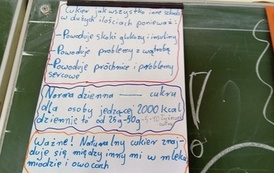 Cukier jak wszystko inne szkodzi
w dużych ilościach ponieważ:
-Powoduje skoki glukozy i insuliny
-Powoduje problemy z wątrobą
-Powoduje próchnicę i problemy
sercowe
Norma dzienna — cukru
dla osoby jedzącej 2000 kcal
dziennie to od 25g-50g
Ważne! Naturalny cukier znaj-
duje się między innymi w mleku
miodzie i owocach